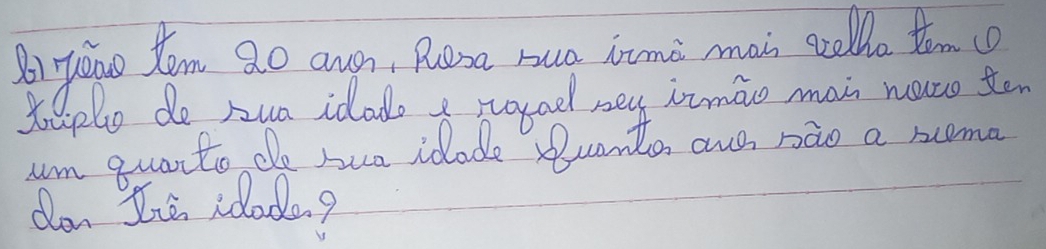 b) João tem 20 anos, Rosa sua irmã mais velha tem o
triplo de sua idade e rafael seu irmão mais novo tem
um quarto de sua idade Quantos anos são a suma
das três idades?